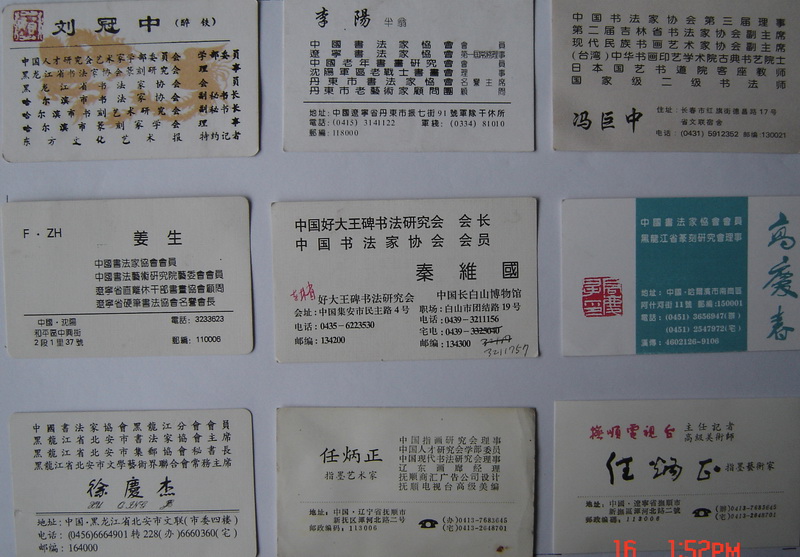 刘冠中 (醉铁)
中国人才研究会艺术家学部委员会 学部委员
黑龙江省书法家协会篆刻研究会 理事
黑龙江省书法家协会
哈尔滨市书法家协会
哈尔滨市书刻艺术研究会
哈尔滨市篆刻家学会
东方文化艺术报 特约记者
李陽 半翁
中國書法家協會會員
遼寧省書法家協會
中國老年書畫研究會會員
沈陽軍區老戰士書畫會理事
丹東市書法家協會名譽主席
丹東市老藝術家顧問團顧問
地址:中國遼寧省丹東市振七街91號軍隊干休所
電話:(0415) 3141122 軍綫:(0334) 81010
郵編:118000
中国书法家协会第三届理事
第二届吉林省书法家协会副主席
现代民族书画艺术家协会副主席
(台湾)中华书画印艺学术院古典书艺士
日本国艺书道院客座教师
国家级二级书法师
冯巨中
住址:长春市红旗街德昌路17号
省文联宿舍
电话:(0431) 5912352 邮编:130021
F·ZH 姜生
中國書法家協會會員
中國書法藝術研究院藝委會會員
遼寧省直離休干部書畫協會顧問
遼寧省硬筆書法協會名譽會長
中國·沈陽
和平區中興街
2段1里37號
電話:3233623
郵編:110006
中国好大王碑书法研究会 会长
中国书法家协会 会员
秦維國
好大王碑书法研究会
会址:中国集安市民主路4号
电话:0435-6223530
邮编:134200
中国长白山博物馆
职场:白山市团结路19号
电办:0439-3211156
宅电:0439-3325040
邮编:134300
3211757
中國書法家協會會員
黑龍江省篆刻研究會理事
高慶春
地址:中國·哈爾濱市南崗區
阿什河街11號 郵編:150001
電話:(0451) 3656947(辦)
(0451) 2547972(宅)
漢傳:4602126-9106
中國書法家協會黑龍江分會會員
黑龍江省北安市書法家協會主席
黑龍江省北安市集郵協會秘書長
黑龍江省北安市文學藝術界聯合會常務主席
徐慶杰
XU QING J
地址:中国·黑龙江省北安市文联(市委四楼)
电话:(0456)6664901转228(办)6660360(宅)
邮编:164000
中国指画研究会理事
中国人才研究会学部委员
中国现代书法研究会理事
辽东画廊经理
抚顺商汇广告公司设计
抚顺电视台高级美编
任炳正
指墨艺术家
地址:中国·辽宁省抚顺市
新抚区潭河北路二号
邮政编码:113006
(办)0413-7683645
(宅)0413-2648701
撫順電視台 主任記者
高級美術師
任炳正 指墨藝術家
地址:中國·遼寧省撫順市
郵政編碼:113006
16 1:52PM